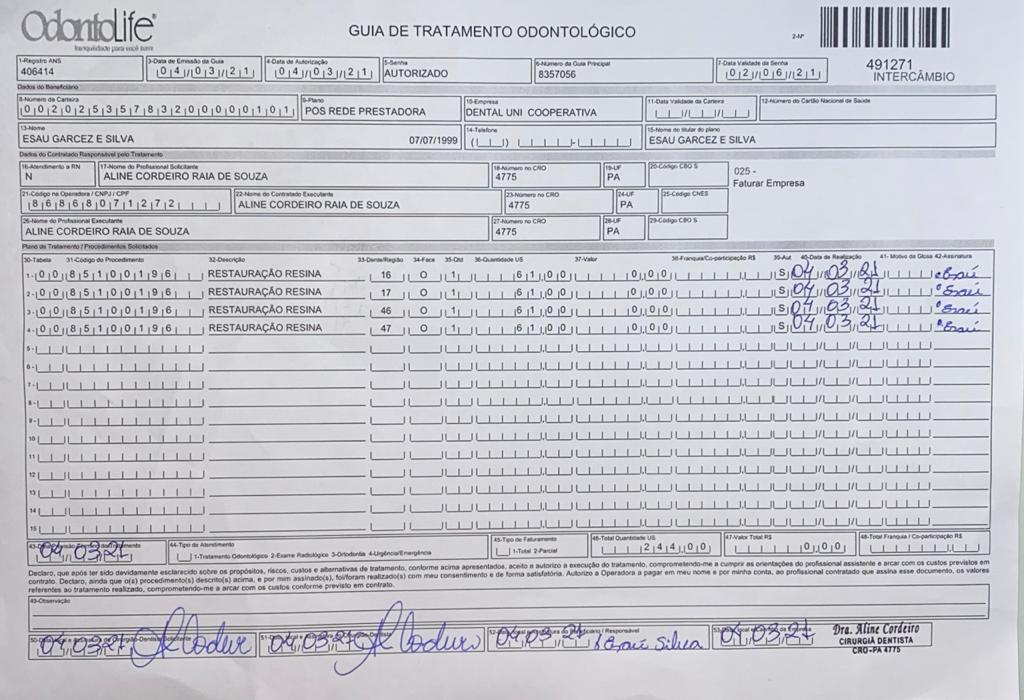 OdontoLife®
tranquilidade para você sorrir
GUIA DE TRATAMENTO ODONTOLÓGICO
2-Nº
491271
INTERCÂMBIO
1-Registro ANS 3-Data de Emissão da Guia 4-Data de Autorização 5-Senha 6-Número da Guia Principal 7-Data Validade da Senha
406414 04/03/21 04/03/21 AUTORIZADO 8357056 02/06/21
Dados do Beneficiário
8-Número da Carteira 9-Plano 10-Empresa 11-Data Validade da Carteira 12-Número do Cartão Nacional de Saúde
00202535783200000101 POS REDE PRESTADORA DENTAL UNI COOPERATIVA
13-Nome 14-Telefone 15-Nome do titular do plano
ESAU GARCEZ E SILVA 07/07/1999 ESAU GARCEZ E SILVA
Dados do Contratado Responsável pelo Tratamento
16-Atendimento a RN 17-Nome do Profissional Solicitante 18-Número no CRO 19-UF 20-Código CBO S
N ALINE CORDEIRO RAIA DE SOUZA 4775 PA
025 -
Faturar Empresa
21-Código na Operadora / CNPJ / CPF 22-Nome do Contratado Executante 23-Número no CRO 24-UF 25-Código CNES
86868071272 ALINE CORDEIRO RAIA DE SOUZA 4775 PA
26-Nome do Profissional Executante 27-Número no CRO 28-UF 29-Código CBO S
ALINE CORDEIRO RAIA DE SOUZA 4775 PA
Plano de Tratamento / Procedimentos Solicitados
30-Tabela 31-Código do Procedimento 32-Descrição 33-Dente/Região 34-Face 35-Qtd 36-Quantidade US 37-Valor 38-Franquia/Co-participação R$ 39-Aut 40-Data de Realização 41- Motivo da Glosa 42-Assinatura
1- 00 85100196 RESTAURAÇÃO RESINA 16 O 1 61,00 0,00 S 04 03 21 Esaú
2- 00 85100196 RESTAURAÇÃO RESINA 17 O 1 61,00 0,00 S 04 03 21 Esaú
3- 00 85100196 RESTAURAÇÃO RESINA 46 O 1 61,00 0,00 S 04 03 21 Esaú
4- 00 85100196 RESTAURAÇÃO RESINA 47 O 1 61,00 0,00 S 04 03 21 Esaú
5-
6-
7-
8-
9-
10
11
12
13
14
15
44-Tipo de Atendimento 45-Tipo de Faturamento 46-Total Quantidade US 47-Valor Total R$ 48-Total Franquia / Co-participação R$
04 03 21 1-Tratamento Odontológico 2-Exame Radiológico 3-Ortodontia 4-Urgência/Emergência 1-Total 2-Parcial 244,00 0,00
Declaro, que após ter sido devidamente esclarecido sobre os propósitos, riscos, custos e alternativas de tratamento, conforme acima apresentados, aceito e autorizo a execução do tratamento, comprometendo-me a cumprir as orientações do profissional assistente e arcar com os custos previstos em
contrato. Declaro, ainda que o(s) procedimento(s) descrito(s) acima, e por mim assinado(s), foi/foram realizado(s) com meu consentimento e de forma satisfatória. Autorizo a Operadora a pagar em meu nome e por minha conta, ao profissional contratado que assina esse documento, os valores
referentes ao tratamento realizado, comprometendo-me a arcar com os custos conforme previsto em contrato.
49-Observação
04 03 21 04 03 21 04 03 21 Esaú Silva 04 03 21
Dra. Aline Cordeiro
CIRURGIÃ DENTISTA
CRO-PA 4775